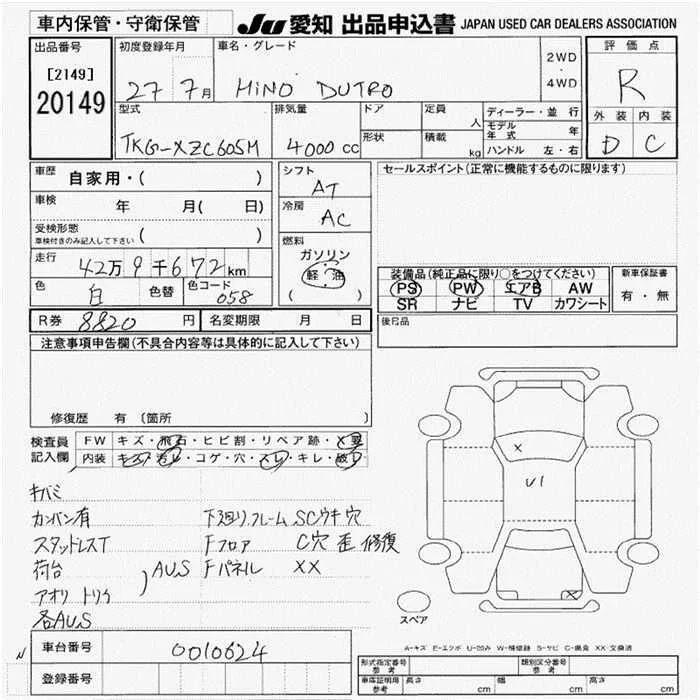 車内保管・守衛保管
JU 愛知 出品申込書 JAPAN USED CAR DEALERS ASSOCIATION
出品番号
[2149]
20149
初度登録年月
27 7月
車名・グレード
HINO DUTRO
2WD
4WD
評価点
R
外装 内装
D C
型式
TKG-XZC605M
排気量
4000 cc
ドア
形状
定員
人
積載
kg
ディーラー・並行
モデル年式 年
ハンドル 左・右
車歴
自家用・( )
車検
年 月( 日)
受検形態
車検付きのみ記入して下さい ( )
走行
42万9千672km
色
白
色替
色コード
058
シフト
AT
冷房
AC
燃料
ガソリン
軽油
( )
セールスポイント(正常に機能するものに限ります)
装備品(純正品に限り○をつけてください)
PS PW エアB AW
SR ナビ TV カワシート
新車保証書
有・無
後日品
R券 8820 円
名変期限 月 日
注意事項申告欄(不具合内容等は具体的に記入して下さい)
修復歴 有 (箇所
検査員
記入欄
FW キズ・飛石・ヒビ割・リペア跡・X要
内装 キズ・汚レ・コゲ・穴・スレ・キレ・破レ
キバミ
カンバン有
スタッドレスT
荷台
アオリ トリイ
AUS
各AUS
下廻リ,フレーム SCウキ穴
Fフロア C穴 歪 修復
Fパネル XX
X
U1
X
スペア
A-キズ E-エクボ U-凹み W-補修跡 S-サビ C-腐食 XX 交換済
N
車台番号
0010624
登録番号
形式指定番号
参考
類別区分番号
参考
車庫証明用
参考
長さ cm
幅 cm
高さ cm